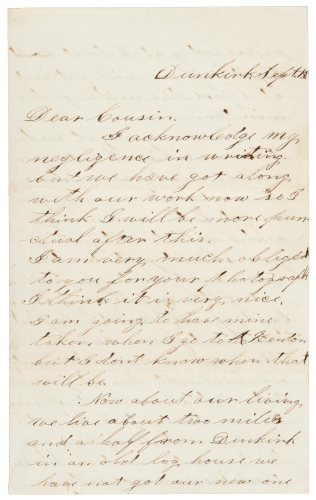 Dunkirk Sept. 12
Dear Cousin.
I acknowledge my
negligence in writing
but we have got along
with our work now so I
think I will be more pun-
ctual after this.
I am very much obliged
to you for your Photograph
I think it is very nice.
I am going to have mine
taken when I go to Kenton
but I dont know when that
will be.
Now about our living
we live about two miles
and a half from Dunkirk
in an old log house we
have not got our new one